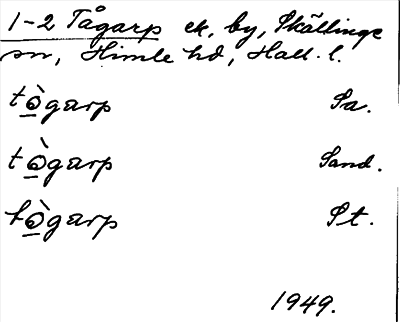 1-2 Tågarp ek, by, Skällinge
sn, Himle hd, Hall. l.
tò̲garp Sa.
tò̲garp Sand.
tò̲garp St.
1949.